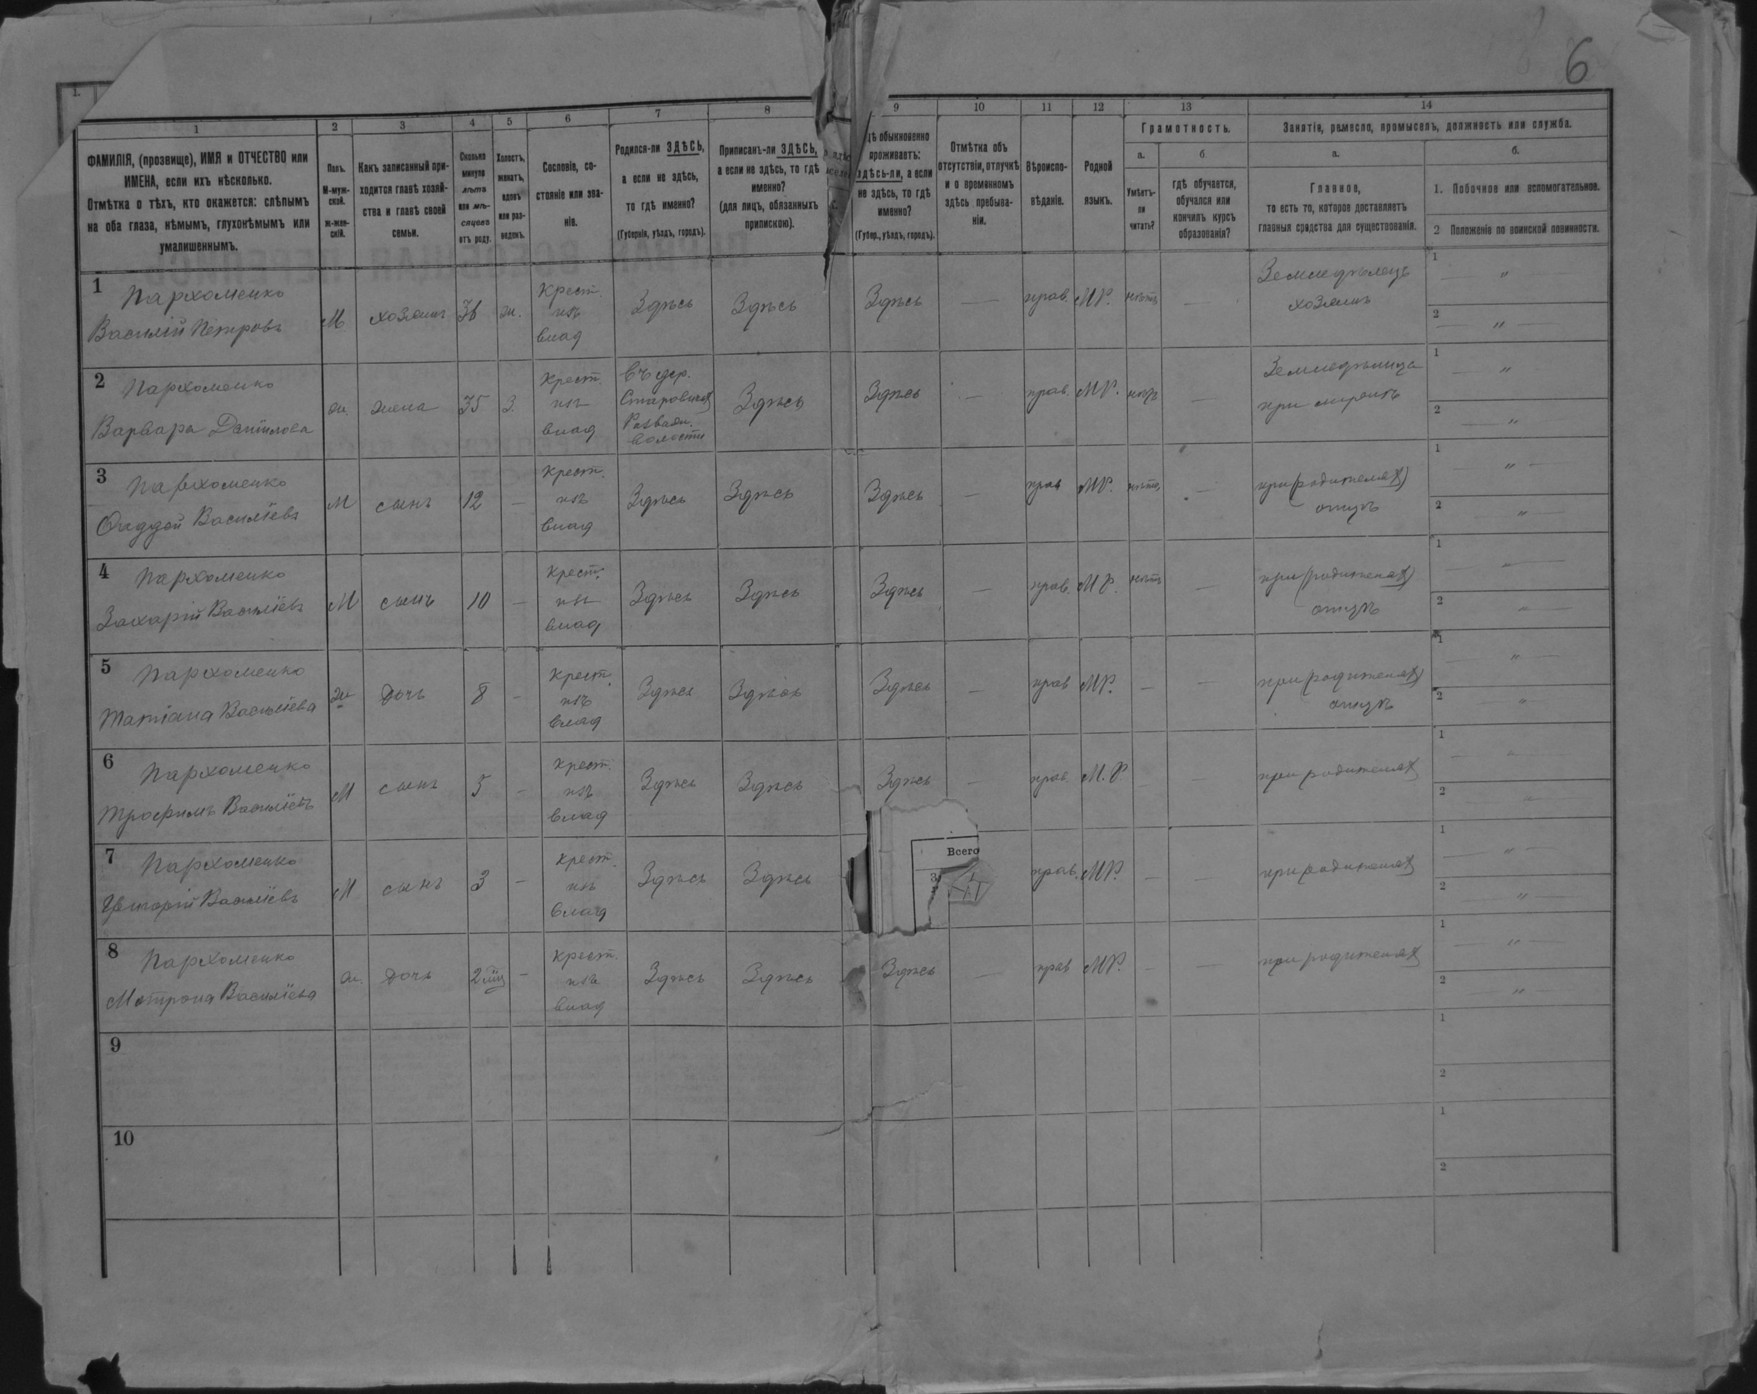 6
1.
1 2 3 4 5 6 7 8 9 10 11 12 13 14
ФАМИЛІЯ, (прозвище), ИМЯ и ОТЧЕСТВО или
ИМЕНА, если ихъ нѣсколько.
Отмѣтка о тѣхъ, кто окажется: слѣпымъ
на оба глаза, нѣмымъ, глухонѣмымъ или
умалишеннымъ.
Полъ.
М-муж-
ской.
Ж-жен-
скій.
Какъ записанный при-
ходится главѣ хозяй-
ства и главѣ своей
семьи.
Сколько
минуло
лѣтъ
или мѣ-
сяцевъ
отъ роду.
Холостъ,
женатъ,
вдовъ
или раз-
веденъ.
Сословіе, со-
стояніе или зва-
ніе.
Родился-ли ЗДѢСЬ,
а если не здѣсь,
то гдѣ именно?
(Губернія, уѣздъ, городъ).
Приписанъ-ли ЗДѢСЬ,
а если не здѣсь, то гдѣ
именно?
(для лицъ, обязанныхъ
припискою).
дѣ обыкновенно
проживаетъ:
здѣсь-ли, а если
не здѣсь, то гдѣ
именно?
(Губер., уѣздъ, городъ).
Отмѣтка объ
отсутствіи, отлучкѣ
и о временномъ
здѣсь пребыва-
ніи.
Вѣроиспо-
вѣданіе.
Родной
языкъ.
Грамотность.
а.
Умѣетъ-
ли
читать?
б
гдѣ обучается,
обучался или
кончилъ курсъ
образованія?
Занятіе, ремесло, промыселъ, должность или служба.
а.
Главное,
то есть то, которое доставляетъ
главныя средства для существованія.
б.
1. Побочное или вспомогательное.
2 Положеніе по воинской повинности.
1 Пархоменко
Василій Петровъ
М хозяинъ 36 ж. Крест. изъ влад Здѣсь Здѣсь Здѣсь — прав. МР. нѣтъ —
Земледѣлецъ
хозяинъ
1 — " —
2 — " —
2 Пархоменко
Варвара Данилова
ж. жена 35 З. Крест. изъ влад
Въ дер.
волости
Здѣсь Здѣсь — прав. МР. нѣтъ —
Земледѣлица
при
1 — " —
2 — " —
3 Пархоменко
Фаддей Василіевъ
М сынъ 12 — Крест. изъ влад Здѣсь Здѣсь Здѣсь — прав МР. нѣтъ —
при (родителях)
отцѣ
1 — " —
2 — " —
4 Пархоменко
Захарій Василіевъ
М сынъ 10 — Крест. изъ влад Здѣсь Здѣсь Здѣсь — прав. МР. нѣтъ —
при (родителях)
отцѣ
1 — " —
2 — " —
5 Пархоменко
Татіана Василіева
ж дочь 8 — Крест. изъ влад Здѣсь Здѣсь Здѣсь — прав МР. — —
при (родителях)
отцѣ
1 — " —
2 — " —
6 Пархоменко
Трофимъ Василіевъ
М сынъ 5 — Крест. изъ влад Здѣсь Здѣсь Здѣсь — прав. М.Р — —
при родителях
1 — " —
2 — " —
Всего
7 Пархоменко
Григорій Василіевъ
М сынъ 3 — Крест. изъ влад Здѣсь Здѣсь прав. МР. — —
при родителях
1 — " —
2 — " —
8 Пархоменко
Матрона Василіева
ж. дочь — Крест. изъ влад Здѣсь Здѣсь Здѣсь — прав МР. — —
при родителях
1 — " —
2 — " —
9
1
2
10
1
2